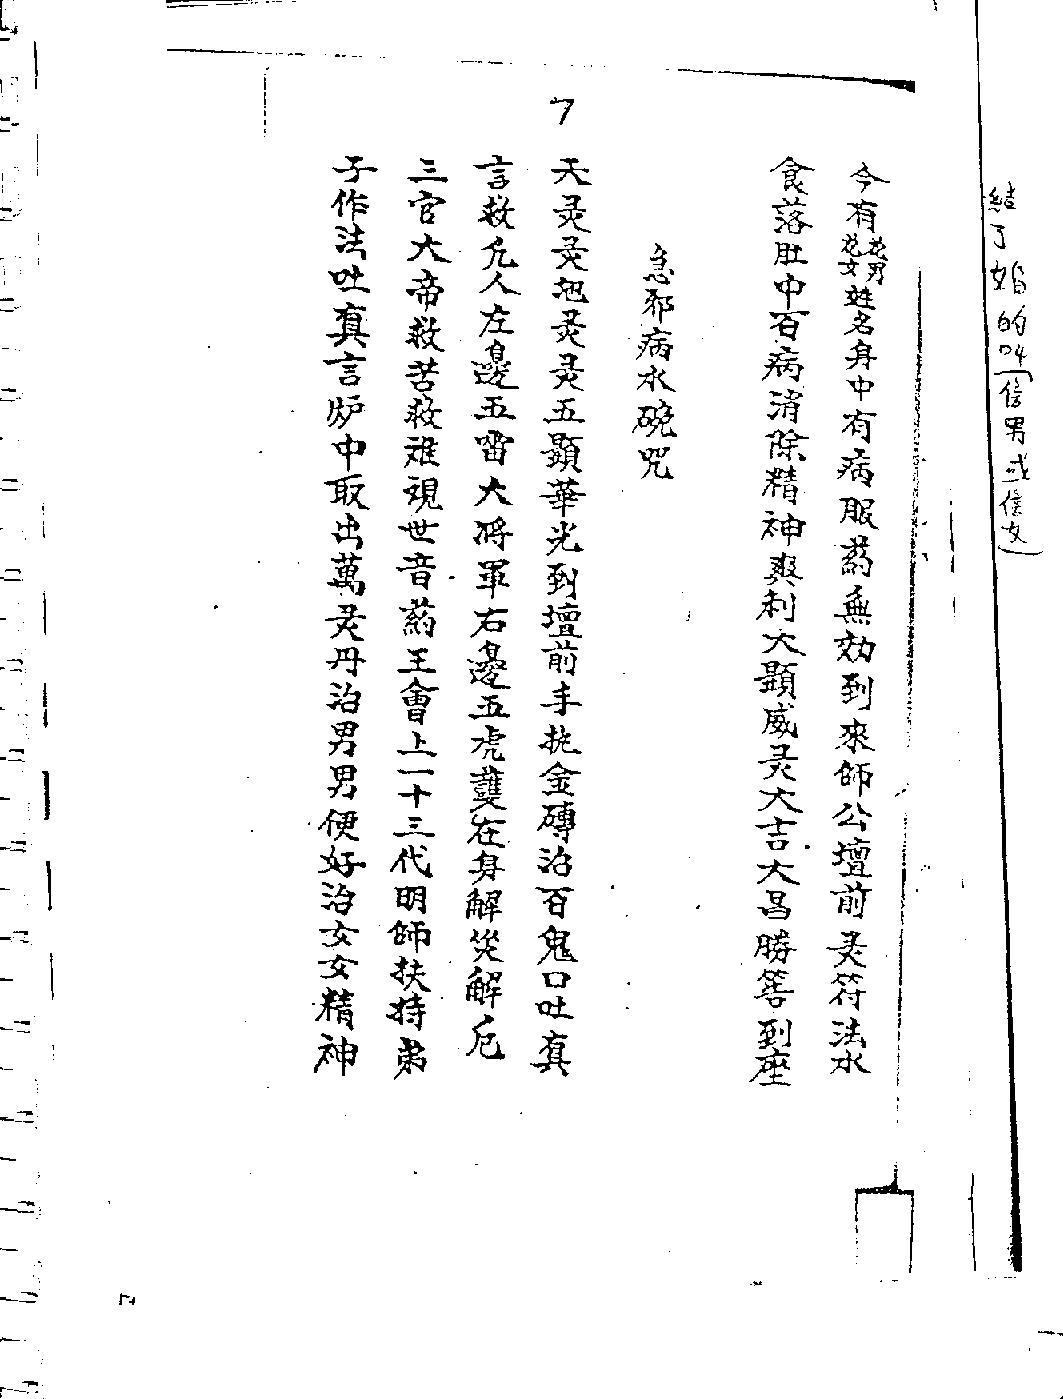 結了婚的叫(信男或信女)
今有花男花女姓名身中有病服药無効到來師公壇前灵符法水
食落肚中百病消除精神爽利大顯威灵大吉大昌勝筶到座
急邪病水碗咒
7
天灵灵地灵灵五顯華光到壇前手执金磚治百鬼口吐真
言救凡人左邊五雷大将軍右邊五虎護在身解災解厄
三官大帝救苦救难視世音药王會上一十三代明師扶持弟
子作法吐真言炉中取出萬灵丹治男男便好治女女精神